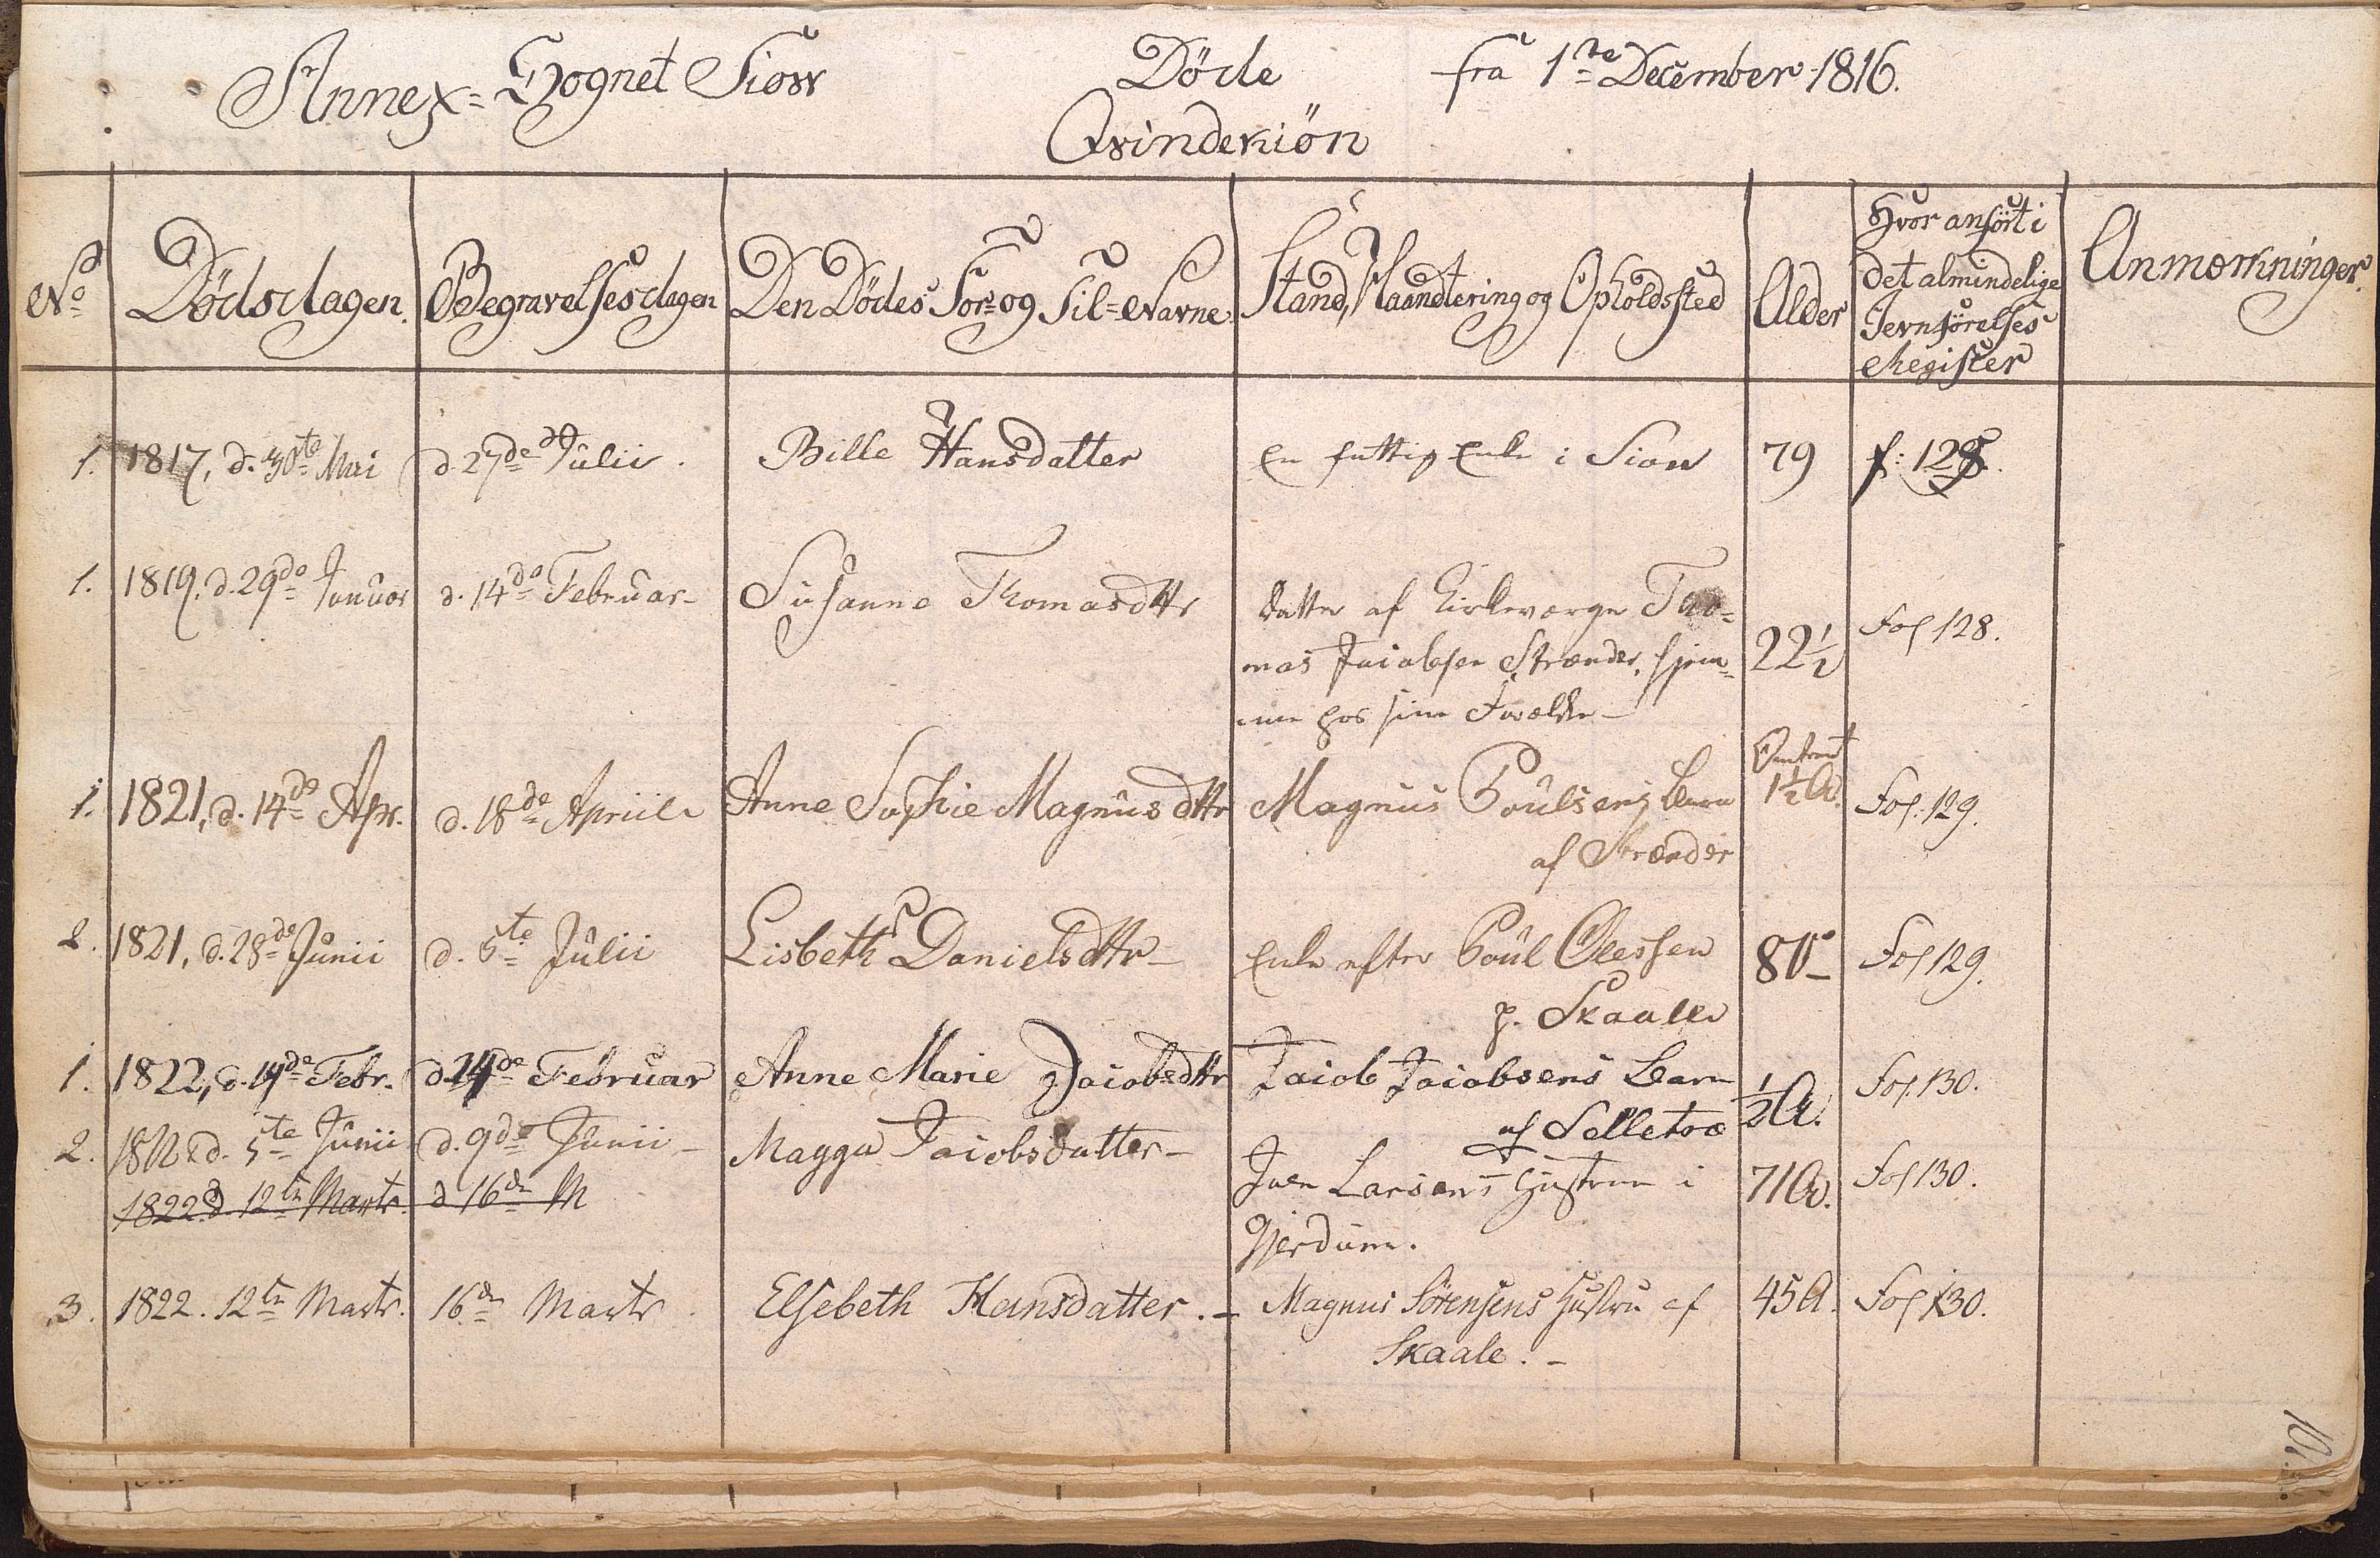 Annex=Sognet Siow Döde fra 1ste December 1816.
Qvindekiön
No Dödsdagen. Begravelsesdagen Den Dödes For= og Til=Navne. Stand, Haandtering og Opholdssted Alder Hvor anfört i
det almindelige
Jevnförelses
Register Anmerkninger.
1. 1817, d. 30te Mai d. 27de Julii. Bille Hansdatter En fattig Enke i Siow 79 f: 128.
1. 1819, d. 29de Januar d. 14de Februar- Susanne Thomasdttr Datter af Kirkeværge Tho=
mas Jacobsen Strænder, hjem= 22½ Fol 128.
me hos sine Forældre-
1. 1821, d. 14de Apr. d. 18de Apriile Anne Sophie Magnusdttr Magnus Poulsens Barn Omtrent
1½ A. Fol. 129.
af Strænder
2. 1821, d. 28de Junii d. 5te Julii Lisbeth Danielsdttr- Enke efter Poul Olessen 80- Fol 129.
p. Skaalle
1. 1822, d. 14de Febr. d. 24de Februar Anne Marie Jacobsdttr Jaicob Jaicobsens Barn ½ A. Fol. 130.
af Selletræ
2. 1822 d. 5te Junii d. 9de Junii- Magga Jaicobsdatter- Joen Larsens Hustrue i 71 A. Fol 130.
1822 d. 12te Marts. d 16de M
Gjerdum.
3. 1822. 12te Marts. 16de Marts. Elsebeth Hansdatter.- Magnus Sörensens Hustru af 45 A. Fol 130.
Skaale.-
101.